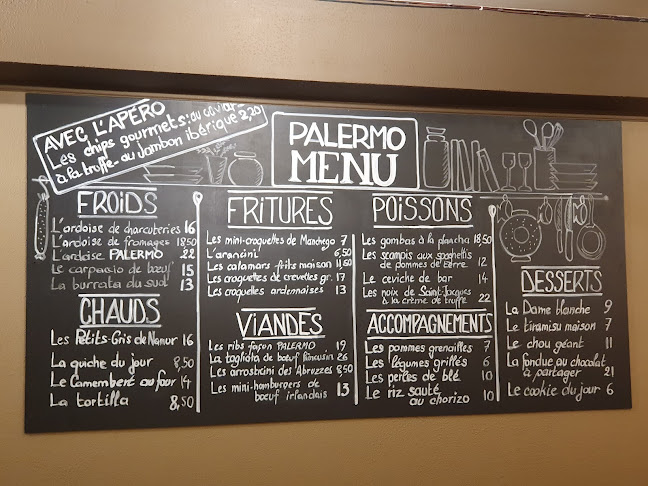 AVEC L'APÉRO
Les chips gourmets: au caviar -
à la truffe - au jambon ibérique 3,20
PALERMO
MENU
FROIDS
L'ardoise de charcuteries 16
L'ardoise de fromages 18,50
L'ardoise PALERMO 22
Le carpaccio de bœuf 15
La burrata du sud 13
CHAUDS
Les Petits-Gris de Namur 16
La quiche du jour 8,50
Le Camembert au four 14
La tortilla 8,50
FRITURES
Les mini-croquettes de Manchego 7
L'arancini 6,50
Les calamars frits maison 11,50
Les croquettes de crevettes gr. 17
Les croquettes ardennaises 13
VIANDES
Les ribs façon PALERMO 19
La tagliata de bœuf limousin 26
Les arrosticini des Abruzzes 8,50
Les mini-hamburgers de
bœuf irlandais 13
POISSONS
Les gambas à la plancha 18,50
Les scampis aux spaghettis
de pommes de terre 12
Le ceviche de bar 14
Les noix de Saint-Jacques
à la crème de truffe 22
ACCOMPAGNEMENTS
Les pommes grenailles 7
Les légumes grillés 6
Les perles de blé 10
Le riz sauté
au chorizo 10
DESSERTS
La Dame blanche 9
Le tiramisu maison 7
Le chou géant 11
La fondue au chocolat
à partager 21
Le cookie du jour 6